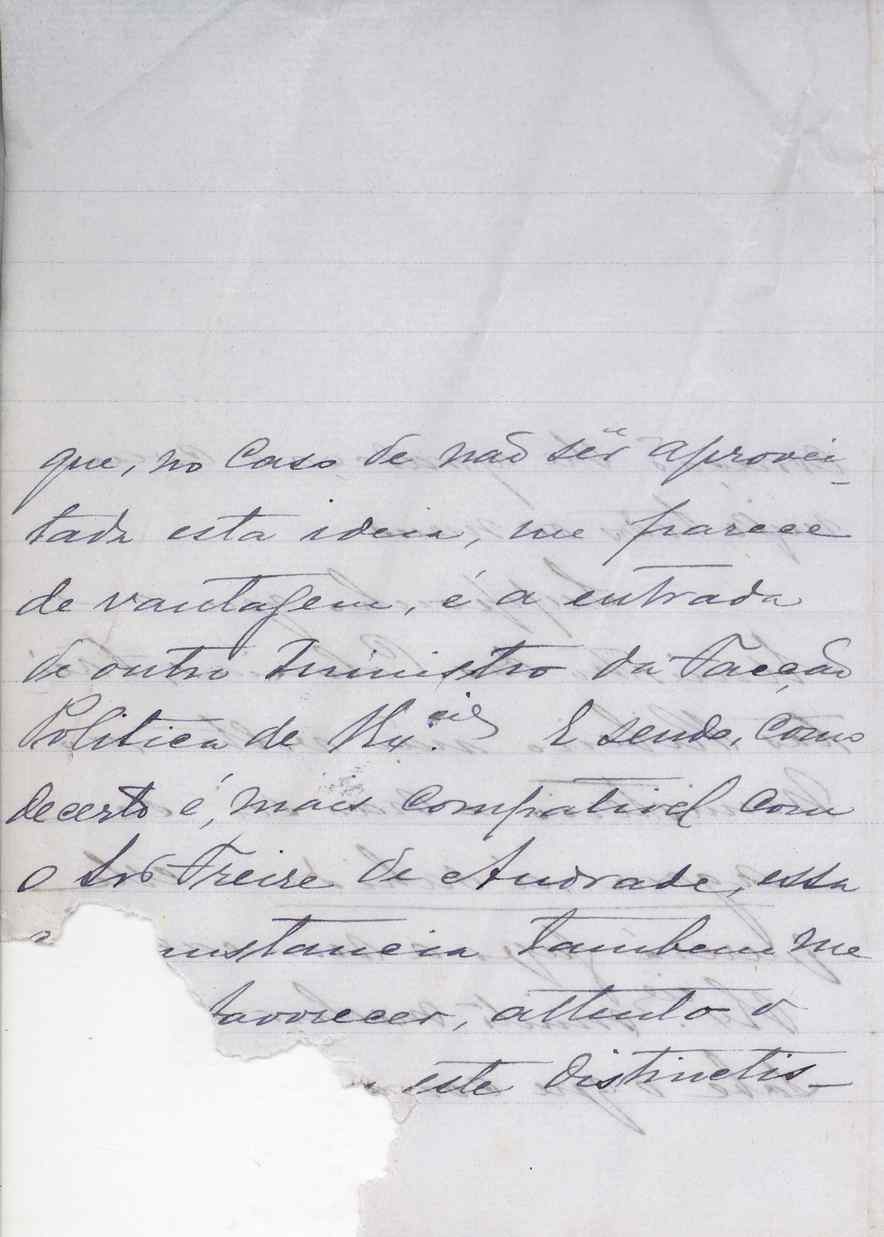 que, no caso de não sêr aprovei-
tada esta ideia, me parece
de vantagem, é a entrada
de outro Ministro da Facção
Politica de V. Ex.cia E sendo, como
decerto é, mais compativel com
o Snr Freire de Andrade, essa
mstancia tambem me
favorecer, attento o
este distinctis-